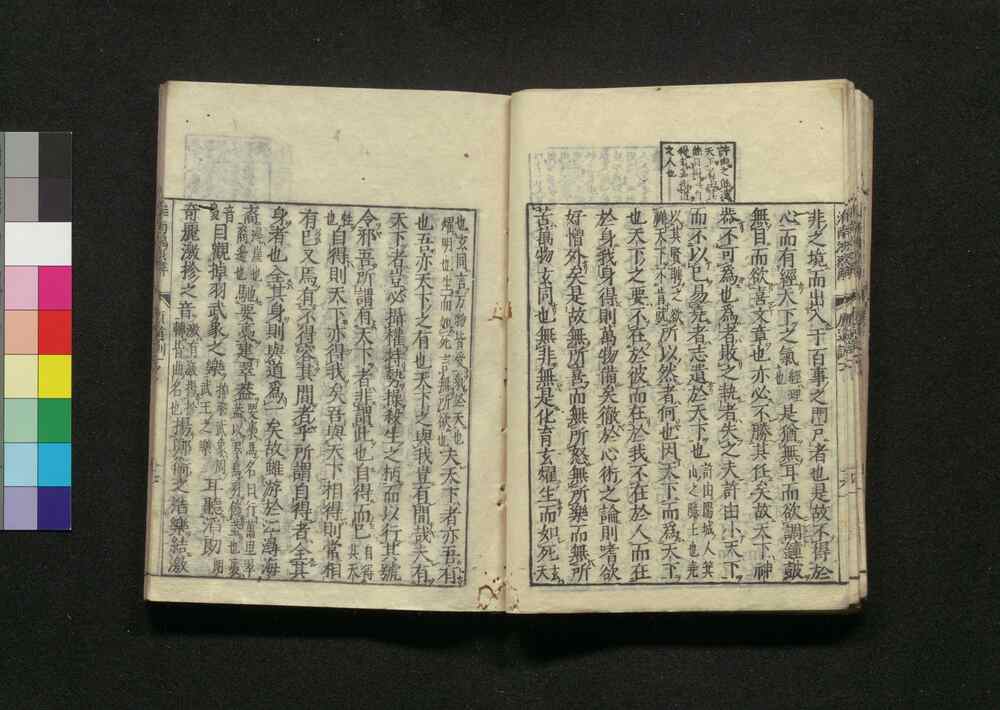 非之境而出入于百事之門戸者也是故不得於
心而有經天下之氣經理也是猶無耳而欲調鐘鼓
無目而欲喜文章也亦必不勝其任矣故天下神
器不可為也為者敗之執者失之夫許由小天下
而不以已易堯者志遺於天下也許由陽城人箕山之隱士也堯
以其賢聘之欲禪天下不肯就所以然者何也因天下而為天下
也天下之要不在於彼而在於我不在於人而在
於身我身得則萬物備矣徹於心術之論則嗜欲
好憎外矣是故無所喜而無所怒無所樂而無所
苦萬物玄同也無非無是化育玄燿生而如死玄天
也玄同言万物皆受氣於天也燿明也生而如死言無所欲也夫天下者亦吾有
也吾亦天下之有也天下之與我豈有間哉夫有
天下者豈必攝權持勢操殺生之柄而以行其號
令邪吾所謂有天下者非謂此也自得而已自得其天
性也自得則天下亦得我矣吾與天下相得則常相
有已又焉有不得容其間者乎所謂自得者全其
身者也全其身則與道為一矣故雖游於江潯海
裔潯崖也裔邊也馳要褭建翠蓋
目觀掉羽武象之樂耳聽滔朗
奇麗激抮之音揚鄭衛之浩樂結激